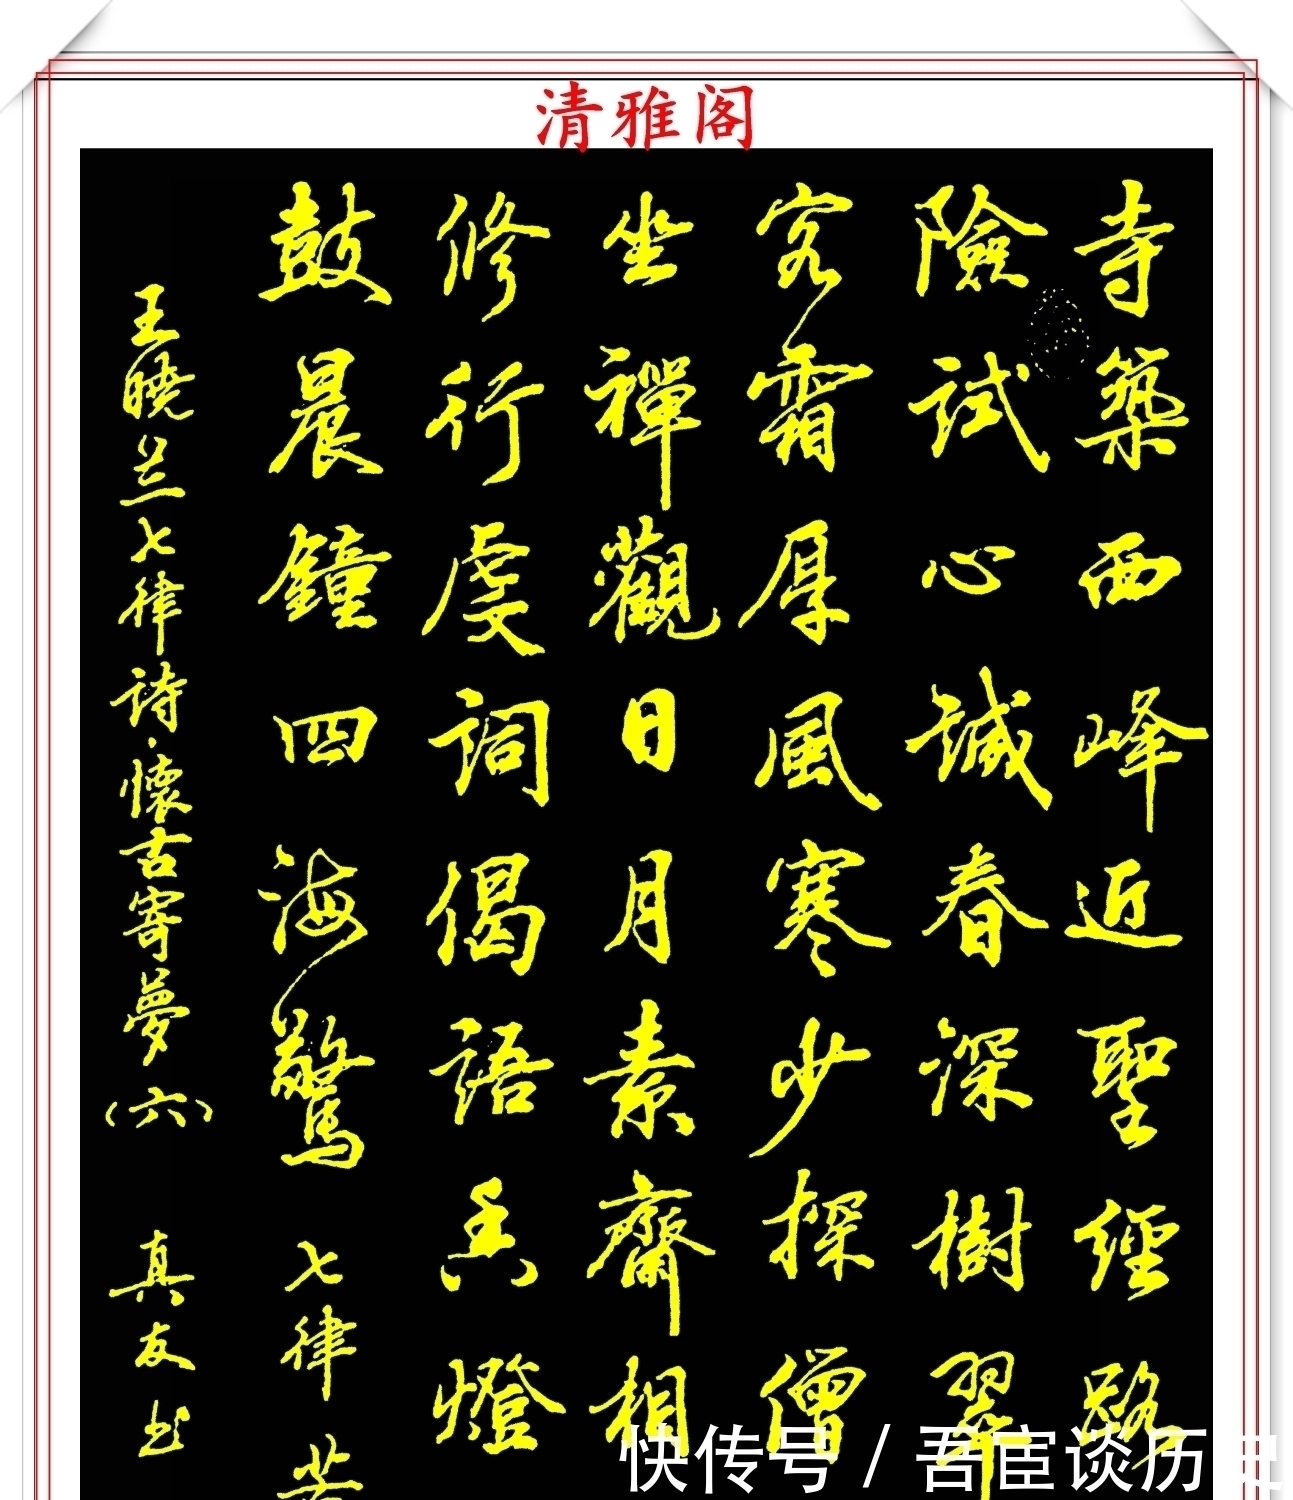 清雅阁
寺築西峰近聖經路
險試心誠春深樹翠
客霜厚風寒少探僧
坐禪觀日月素齋相
修行虔詞偈語香燈
鼓晨鐘四海驚 七律 苦
王曉兰七律诗·懷古寄夢（六） 真友书
快传号 / 吾宦谈历史